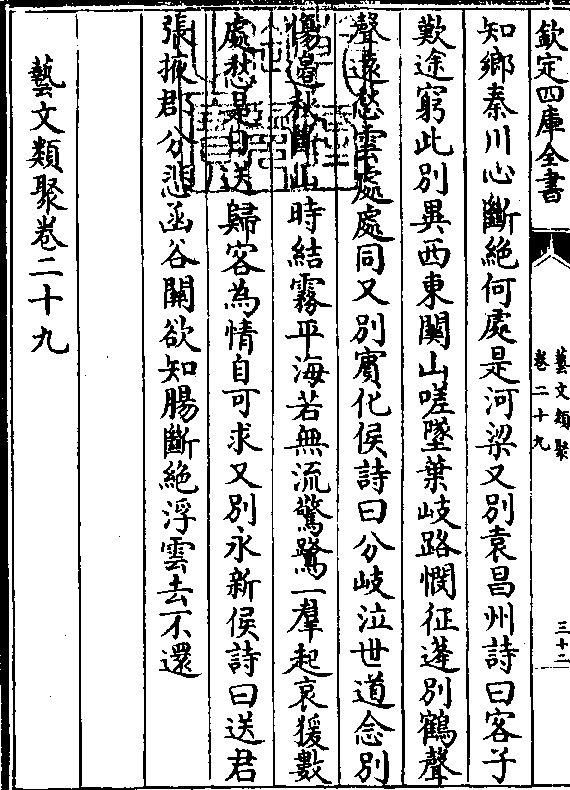 欽定四庫全書
藝文類聚
卷二十九
三十二
知鄉秦川心斷絶何處是河梁又別袁昌州詩曰客子
歎途窮此別異西東關山嗟墜葉岐路憫征蓬別鶴聲
聲遠愁雲處處同又別賔化侯詩曰分岐泣世道念別
傷邊秋斷山時結霧平海若無流驚鷺一羣起哀猨數
處愁是日送歸客為情自可求又別永新侯詩曰送君
張掖郡分悲函谷關欲知腸斷絶浮雲去不還
藝文類聚卷二十九